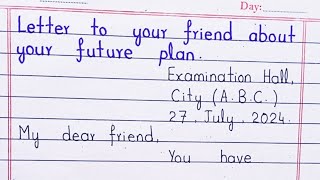 Day:
Letter to your friend about
your future plan.
Examination Hall,
City (A.B.C.)
27, July, 2024.
My dear friend,
You have